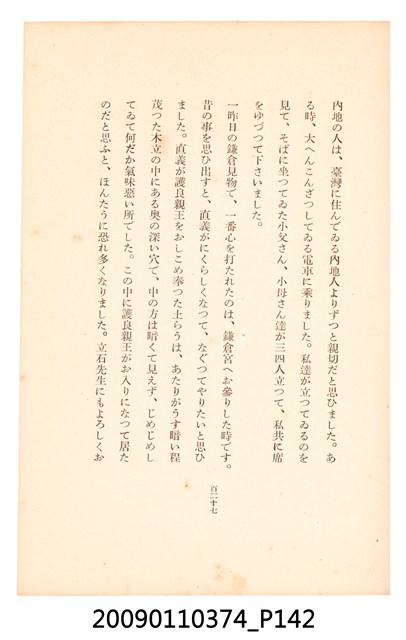 内地の人は、臺灣に住んでゐる内地人よりずつと親切だと思ひました。あ
る時、大へんこんざつしてゐる電車に乘りました。私達が立つてゐるのを
見て、そばに坐つてゐた小父さん、小母さん達が三四人立つて、私共に席
をゆづつて下さいました。
一昨日の鎌倉見物で、一番心を打たれたのは、鎌倉宮へお參りした時です。
昔の事を思ひ出すと、直義がにくらしくなつて、なぐつてやりたいと思ひ
ました。直義が護良親王をおしこめ奉つた土らうは、あたりがうす暗い程
茂つた木立の中にある奥の深い穴で、中の方は暗くて見えず、じめじめし
てゐて何だか氣味惡い所でした。この中に護良親王がお入りになつて居た
のだと思ふと、ほんたうに恐れ多くなりました。立石先生にもよろしくお
百二十七
20090110374_P142